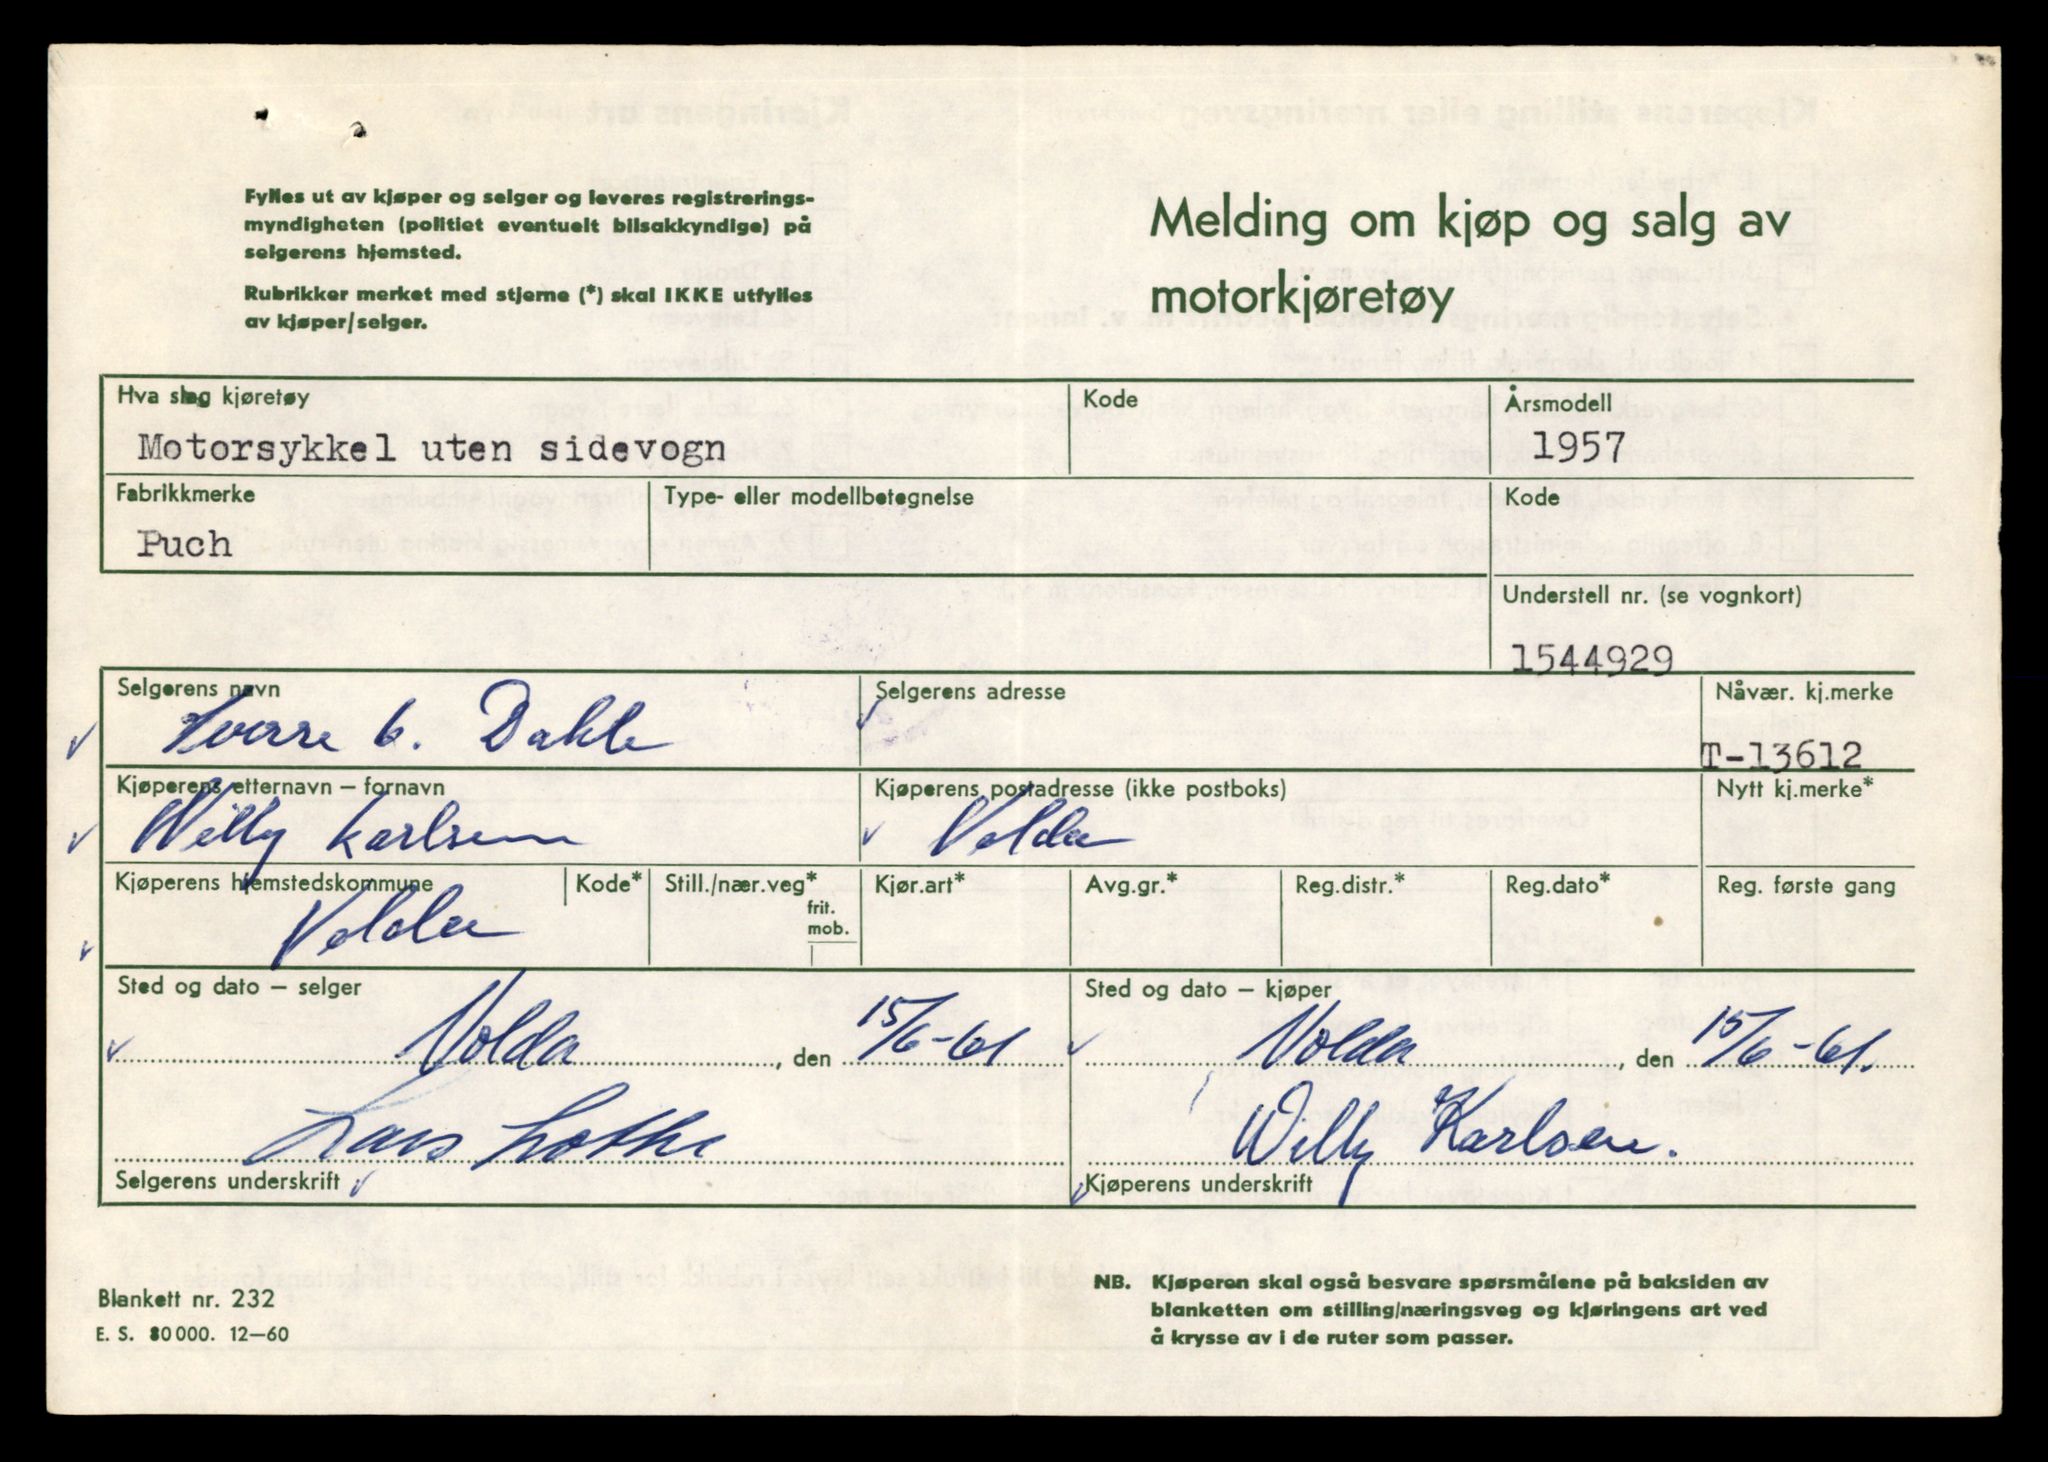 Fylles ut av kjøper og selger og leveres registrerings-
myndigheten (politiet eventuelt bilsakkyndige) på
selgerens hjemsted.
Rubrikker merket med stjerne (*) skal IKKE utfylles
av kjøper/selger.
Melding om kjøp og salg av
motorkjøretøy
Hva slag kjøretøy
Kode
Årsmodell
Motorsykkel uten sidevogn
1957
Fabrikkmerke
Type- eller modellbetegnelse
Kode
Puch
Understell nr. (se vognkort)
1544929
Selgerens navn
Selgerens adresse
Nåvær. kj.merke
Sverre b. Dahle
T-13612
Kjøperens etternavn – fornavn
Kjøperens postadresse (ikke postboks)
Nytt kj.merke*
Willy Karlsen
Volda
Kjøperens hjemstedskommune
Kode*
Still./nær.veg*
frit.
mob.
Kjør.art*
Avg.gr.*
Reg.distr.*
Reg.dato*
Reg. første gang
Volda
Sted og dato – selger
Sted og dato – kjøper
Volda, den 15/6-61
Volda, den 15/6-61.
Lars
Willy Karlsen.
Selgerens underskrift
Kjøperens underskrift
Blankett nr. 232
E. S. 80000. 12–60
NB. Kjøperen skal også besvare spørsmålene på baksiden av
blanketten om stilling/næringsveg og kjøringens art ved
å krysse av i de ruter som passer.